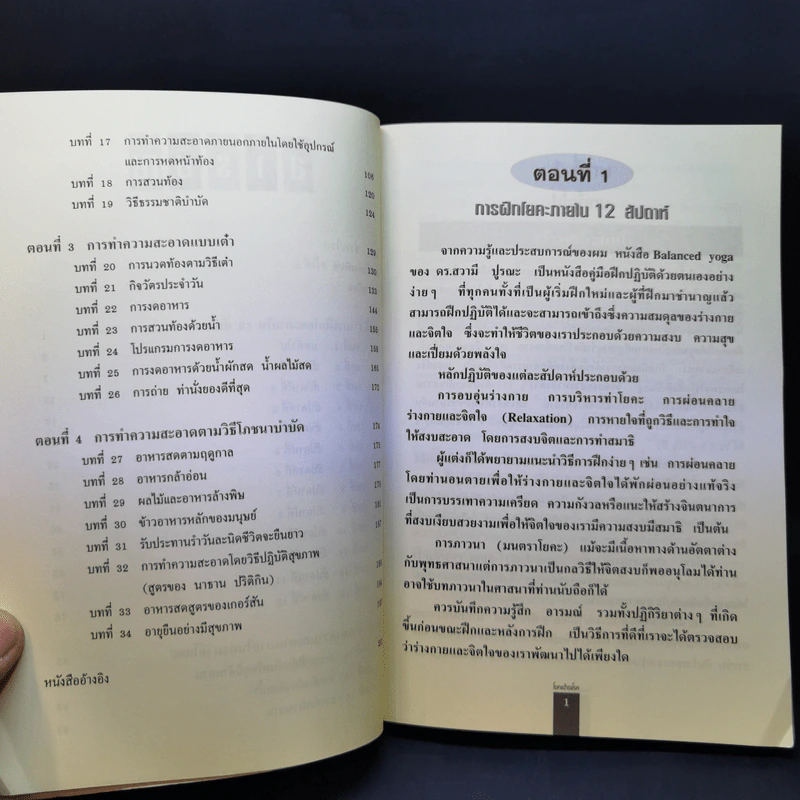 บทที่ 17 การทำความสะอาดภายนอกภายในโดยใช้อุปกรณ์
และการหดหน้าท้อง 106
บทที่ 18 การสวนท้อง 120
บทที่ 19 วิธีธรรมชาติบำบัด 124
ตอนที่ 3 การทำความสะอาดแบบเต๋า 129
บทที่ 20 การนวดท้องตามวิธีเต๋า 130
บทที่ 21 กิจวัตรประจำวัน 133
บทที่ 22 การงดอาหาร 144
บทที่ 23 การสวนท้องด้วยน้ำ 156
บทที่ 24 โปรแกรมการงดอาหาร
บทที่ 25 การงดอาหารด้วยน้ำผักสด น้ำผลไม้สด
บทที่ 26 การถ่าย ท่านั่งยองดีที่สุด 172
ตอนที่ 4 การทำความสะอาดตามวิธีโภชนาบำบัด 174
บทที่ 27 อาหารสดตามฤดูกาล
บทที่ 28 อาหารกล้าอ่อน
บทที่ 29 ผลไม้และอาหารล้างพิษ
บทที่ 30 ข้าวอาหารหลักของมนุษย์
บทที่ 31 รับประทานรำวันละนิดชีวิตจะยืนยาว
บทที่ 32 การทำความสะอาดโดยวิธีปฏิบัติสุขภาพ
(สูตรของ นาธาน ปริติกิน)
บทที่ 33 อาหารสดสูตรของเกอร์สัน
บทที่ 34 อายุยืนอย่างมีสุขภาพ
หนังสืออ้างอิง
ตอนที่ 1
การฝึกโยคะภายใน 12 สัปดาห์
จากความรู้และประสบการณ์ของผม หนังสือ Balanced yoga
ของ ดร.สวามี ปูรณะ เป็นหนังสือคู่มือฝึกปฏิบัติด้วยตนเองอย่าง
ง่ายๆ ที่ทุกคนทั้งที่เป็นผู้เริ่มฝึกใหม่และผู้ที่ฝึกมาชำนาญแล้ว
สามารถฝึกปฏิบัติได้และจะสามารถเข้าถึงซึ่งความสมดุลของร่างกาย
และจิตใจ ซึ่งจะทำให้ชีวิตของเราประกอบด้วยความสงบ ความสุข
และเปี่ยมด้วยพลังใจ
หลักปฏิบัติของแต่ละสัปดาห์ประกอบด้วย
การอบอุ่นร่างกาย การบริหารท่าโยคะ การผ่อนคลาย
ร่างกายและจิตใจ (Relaxation) การหายใจที่ถูกวิธีและการทำใจ
ให้สงบสะอาด โดยการสงบจิตและการทำสมาธิ
ผู้แต่งก็ได้พยายามแนะนำวิธีการฝึกง่ายๆ เช่น การผ่อนคลาย
โดยท่านอนตายเพื่อให้ร่างกายและจิตใจได้พักผ่อนอย่างแท้จริง
เป็นการบรรเทาความเครียด ความกังวลหรือแนะให้สร้างจินตนาการ
ที่สงบเงียบสวยงามเพื่อให้จิตใจของเรามีความสงบมีสมาธิ เป็นต้น
การภาวนา (มนตราโยคะ) แม้จะมีเนื้อหาทางด้านอัตตาต่าง
กับพุทธศาสนาแต่การภาวนาเป็นกลวิธีให้จิตสงบก็พออนุโลมได้ท่าน
อาจใช้บทภาวนาในศาสนาที่ท่านนับถือก็ได้
ควรบันทึกความรู้สึก อารมณ์ รวมทั้งปฏิกิริยาต่างๆ ที่เกิด
ขึ้นก่อนขณะฝึกและหลังการฝึก เป็นวิธีการที่ดีที่เราจะได้ตรวจสอบ
ว่าร่างกายและจิตใจของเราพัฒนาไปได้เพียงใด
1